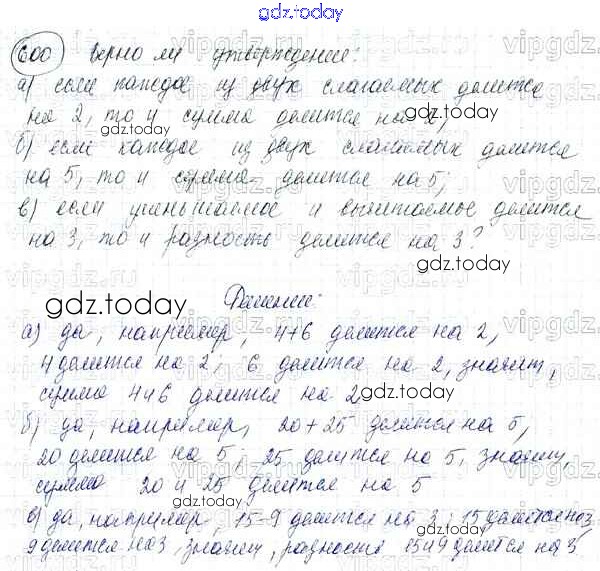 gdz.today
600 верно ли утверждение:
а) если каждое из двух слагаемых делится
на 2, то и сумма делится на 2;
gdz.today
б) если каждое из двух слагаемых делится
на 5, то и сумма делится на 5;
в) если уменьшаемое и вычитаемое делится
на 3, то и разность делится на 3?
gdz.today
gdz.today
Решение:
а) да, например, 4+6 делится на 2,
4 делится на 2; 6 делится на 2, значит,
сумма 4 и 6 делится на 2
gdz.today
б) да, например, 20+25 делится на 5,
20 делится на 5; 25 делится на 5, значит,
сумма 20 и 25 делится на 5
gdz.today
в) да, например, 15-9 делится на 3; 15 делится на 3
9 делится на 3, значит, разность 15 и 9 делится на 3
gdz.today